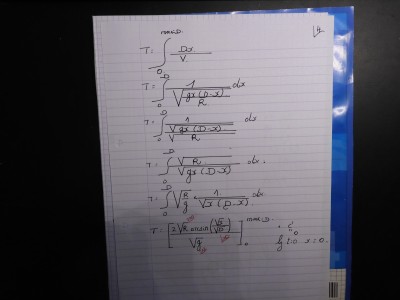 max D.
T = ∫₀ Dx / V
T = ∫₀ᴰ 1 / √(gx(D-x) / R) dx
T = ∫₀ 1 / (√(gx(D-x)) / √R) dx
T = ∫₀ᴰ √R / √(gx(D-x)) dx.
T = ∫₀ᴰ √(R/g) × 1 / √(x(D-x)) dx
T = [2√R arcsin(√x / √D) / √g]₀ max D. + C
t=0 x=0.